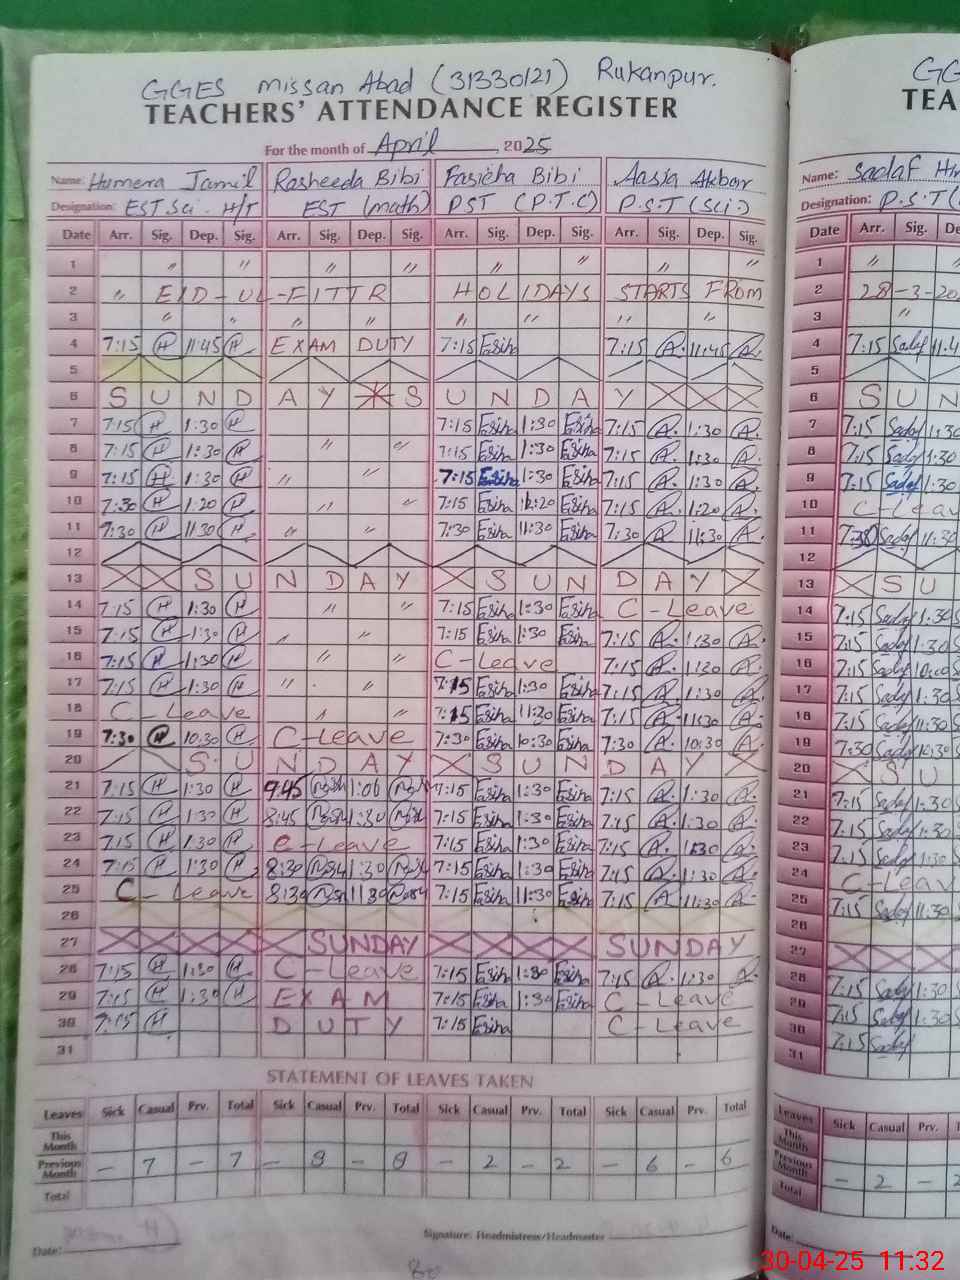 GGES Missan Abad (31330121) Rukanpur.
TEACHERS' ATTENDANCE REGISTER
For the month of April, 2025
Name: Humera Jamil Rasheeda Bibi Fasieha Bibi Aasia Akbar
Designation: EST Sci. H/T EST (math) PST (P.T.C) P.S.T (Sci.)
Date Arr. Sig. Dep. Sig. Arr. Sig. Dep. Sig. Arr. Sig. Dep. Sig. Arr. Sig. Dep. Sig.
1 " " " " " " " "
2 " EID-UL-FITTR HOLIDAYS STARTS FROM
3 " " " " " " " "
4 7:15 H 11:45 H EXAM DUTY 7:15 Esiha 7:15 A. 11:45 A.
5
6 SUNDAY * SUNDAY
7 7:15 H 1:30 H 7:15 Esiha 1:30 Esiha 7:15 A. 1:30 A.
8 7:15 H 1:30 H " " 7:15 Esiha 1:30 Esiha 7:15 A. 1:30 A.
9 7:15 H 1:30 H " " 7:15 Esiha 1:30 Esiha 7:15 A. 1:30 A.
10 7:30 H 1:20 H " " 7:15 Esiha 1:20 Esiha 7:15 A. 1:20 A.
11 7:30 H 11:30 H " " 7:30 Esiha 11:30 Esiha 7:30 A. 11:30 A.
12
13 SUNDAY SUNDAY
14 7:15 H 1:30 H " " 7:15 Esiha 1:30 Esiha C-Leave
15 7:15 H 1:30 H " " 7:15 Esiha 1:30 Esiha 7:15 A. 1:30 A.
16 7:15 H 1:30 H " " C-Leave 7:15 A. 1:30 A.
17 7:15 H 1:30 H " " 7:15 Esiha 1:30 Esiha 7:15 A. 1:30 A.
18 C-Leave " " 7:15 Esiha 11:30 Esiha 7:15 A. 11:30 A.
19 7:30 H 10:30 H C-Leave 7:30 Esiha 10:30 Esiha 7:30 A. 10:30 A.
20 SUNDAY SUNDAY
21 7:15 H 1:30 H 9:45 1:00 7:15 Esiha 1:30 Esiha 7:15 A. 1:30 A.
22 7:15 H 1:30 H 8:45 1:30 7:15 Esiha 1:30 Esiha 7:15 A. 1:30 A.
23 7:15 H 1:30 H C-Leave 7:15 Esiha 1:30 Esiha 7:15 A. 1:30 A.
24 7:15 H 1:30 H 8:30 1:30 7:15 Esiha 1:30 Esiha 7:15 A. 1:30 A.
25 C-Leave 8:30 11:30 7:15 Esiha 11:30 Esiha 7:15 A. 11:30 A.
26
27 SUNDAY SUNDAY
28 7:15 H 1:30 H C-Leave 7:15 Esiha 1:30 Esiha 7:15 A. 1:30 A.
29 7:15 H 1:30 H EXAM 7:15 Esiha 1:30 Esiha C-Leave
30 7:15 H DUTY 7:15 Esiha C-Leave
31
STATEMENT OF LEAVES TAKEN
Leaves Sick Casual Prv. Total Sick Casual Prv. Total Sick Casual Prv. Total Sick Casual Prv. Total
This Month
Previous Month - 7 - 7 - 8 - 8 - 2 - 2 - 6 - 6
Total
Date: Signature: Headmistress/Headmaster
GG
TEA
Name: Sadaf
Designation: P.S.T
Date Arr. Sig.
1 "
2 28-3-20
3 "
4 7:15 Sadaf 11:4
5
6 SUN
7 7:15 Sadaf 1:30
8 7:15 Sadaf 1:30
9 7:15 Sadaf 1:30
10 C-Leav
11 7:30 Sadaf 11:30
12
13 SU
14 7:15 Sadaf 1:30
15 7:15 Sadaf 1:30
16 7:15 Sadaf 10:00
17 7:15 Sadaf 1:30
18 7:15 Sadaf 11:30
19 7:30 Sadaf 10:30
20 SU
21 7:15 Sadaf 1:30
22 7:15 Sadaf 1:30
23 7:15 Sadaf 1:30
24 C-Leav
25 7:15 Sadaf 11:30
26
27
28 7:15 Sadaf 1:30
29 7:15 Sadaf 1:30
30 7:15 Sadaf
31
Leaves Sick Casual Prv.
This Month
Previous Month - 2 -
Total
Date:
30-04-25 11:32